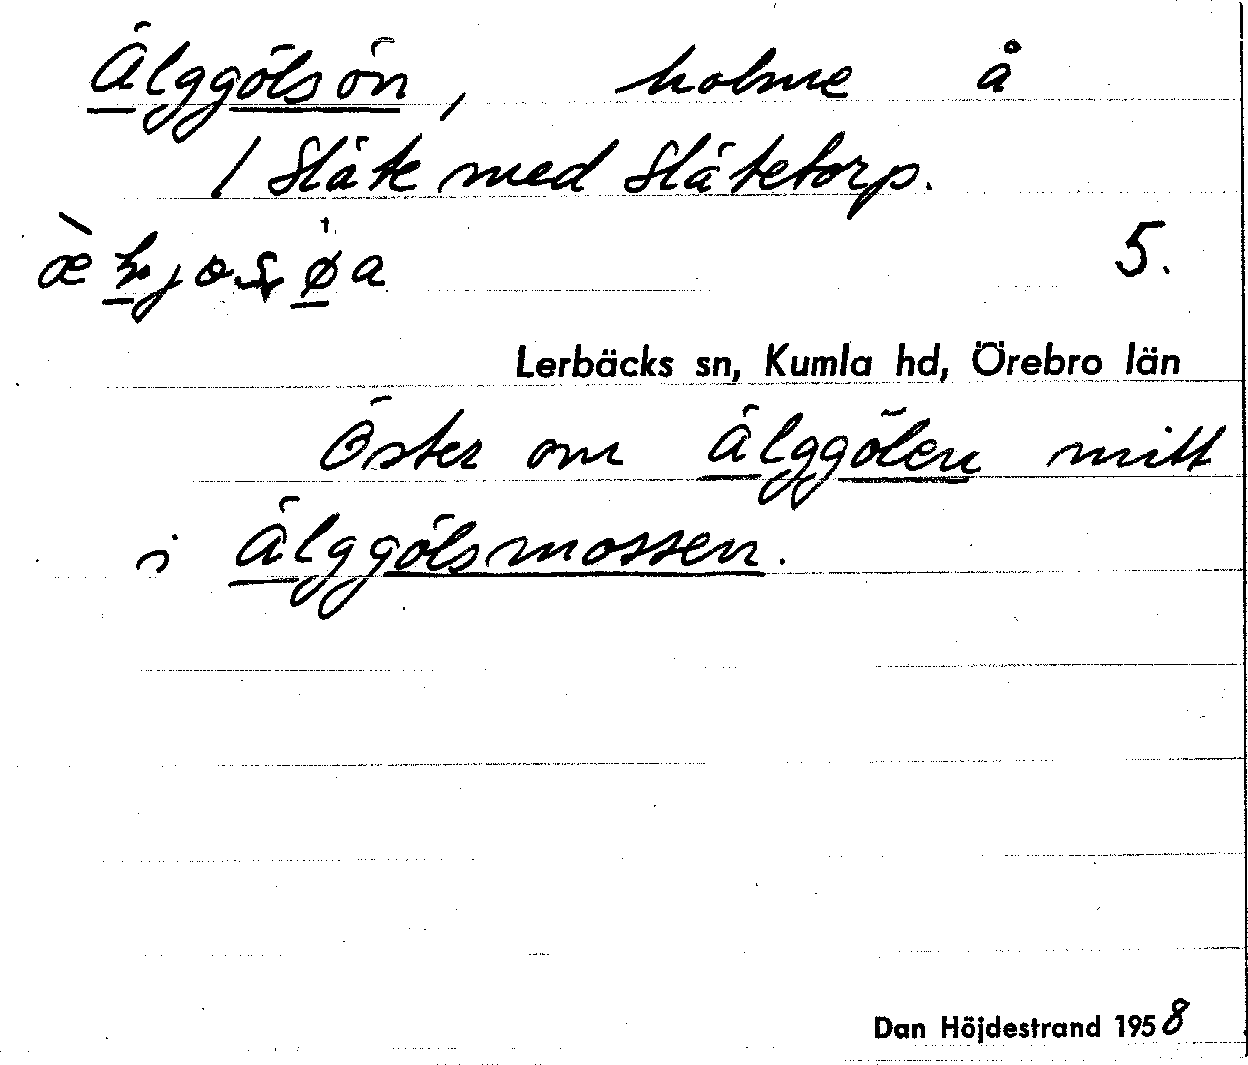 Älggölsön, holme å
/ Släte med Slätetorp.
5.
Lerbäcks sn, Kumla hd, Örebro län
Öster om Älggölen mitt
i Älggölsmossen.
Dan Höjdestrand 1958